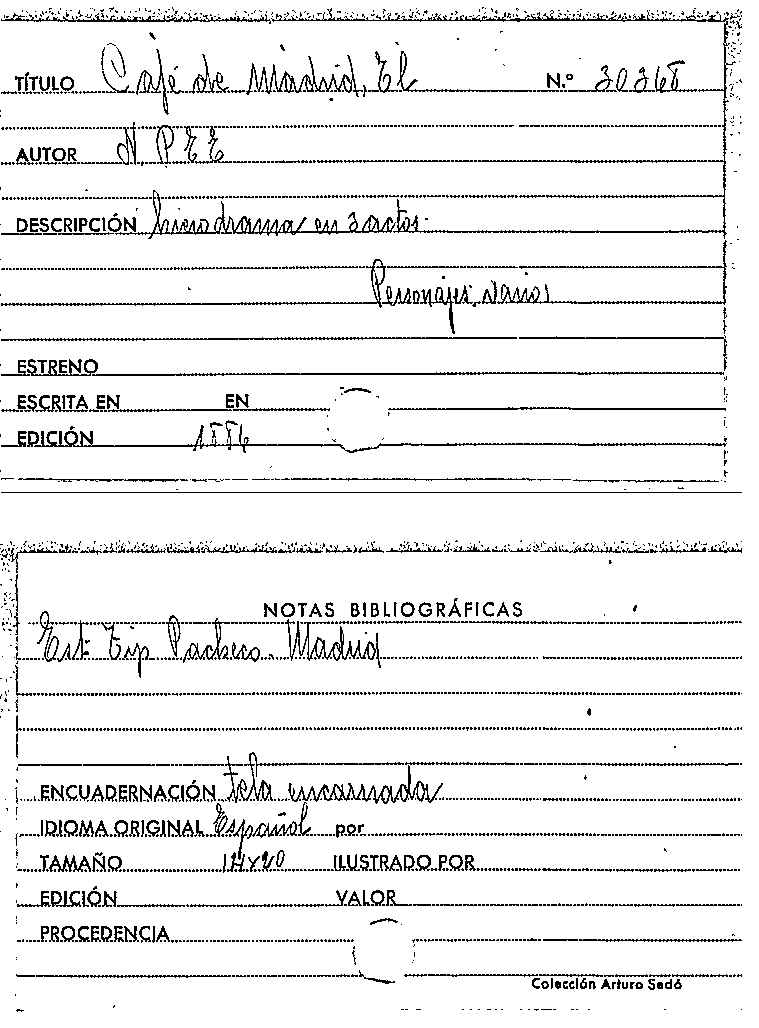 TÍTULO Café de Madrid, El N.º 30368
AUTOR N. P. E E
DESCRIPCIÓN drama en 3 actos.
Personajes. Varios
ESTRENO
ESCRITA EN EN
EDICIÓN 1886
NOTAS BIBLIOGRÁFICAS
Est. Tip Pacheco. Madrid
ENCUADERNACIÓN tela encarnada
IDIOMA ORIGINAL Español por
TAMAÑO 14x20 ILUSTRADO POR
EDICIÓN VALOR
PROCEDENCIA
Colección Arturo Sedó